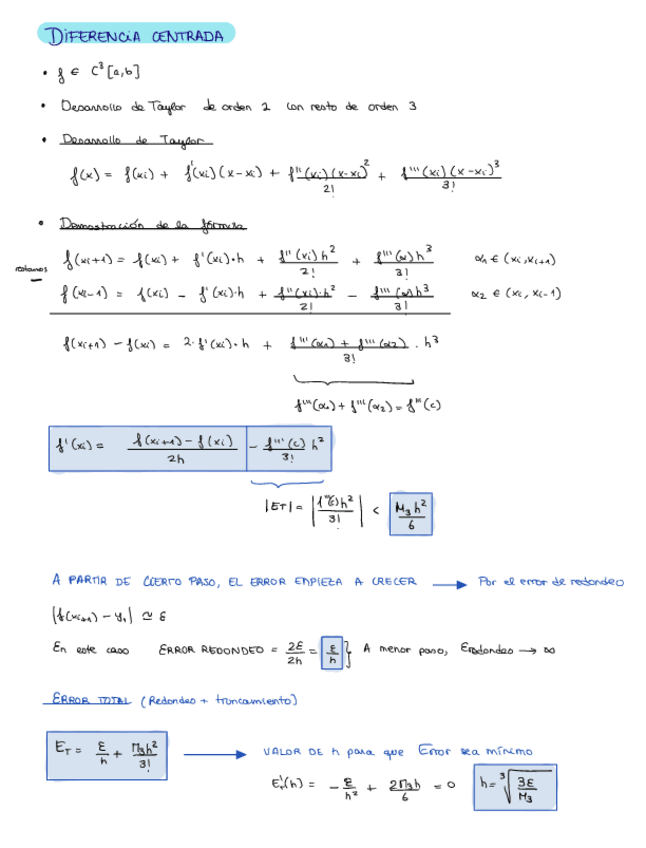 DIFERENCIA CENTRADA
• f ∈ C³[a,b]
• Desarrollo de Taylor de orden 2 con resto de orden 3
• Desarrollo de Taylor
f(x) = f(xi) + f'(xi)(x-xi) + f''(xi)(x-xi)²/2! + f'''(xi)(x-xi)³/3!
• Demostración de la fórmula
f(xi+1) = f(xi) + f'(xi)·h + f''(xi)h²/2! + f'''(α)h³/3! α1 ∈ (xi,xi+1)
restamos
f(xi-1) = f(xi) - f'(xi)·h + f''(xi)·h²/2! - f'''(α)h³/3! α2 ∈ (xi, xi-1)
f(xi+1) - f(xi) = 2·f'(xi)·h + f'''(α1) + f'''(α2)/3! · h³
f'''(α1) + f'''(α2) = f'''(c)
f'(xi) = f(xi+1) - f(xi)/2h - f'''(c)/3! h²
|ET| = |f'''(c)h²/3!| < M3h²/6
A PARTIR DE CIERTO PASO, EL ERROR EMPIEZA A CRECER → Por el error de redondeo
|f(xi+1) - y1| ≃ ε
En este caso ERROR REDONDEO = 2ε/2h = ε/h } A menor paso, Eredondeo → ∞
ERROR TOTAL (Redondeo + truncamiento)
ET = ε/h + M3h²/3! → VALOR DE h para que Error sea mínimo
ET'(h) = - ε/h² + 2M3h/6 = 0 h = ³√3ε/M3